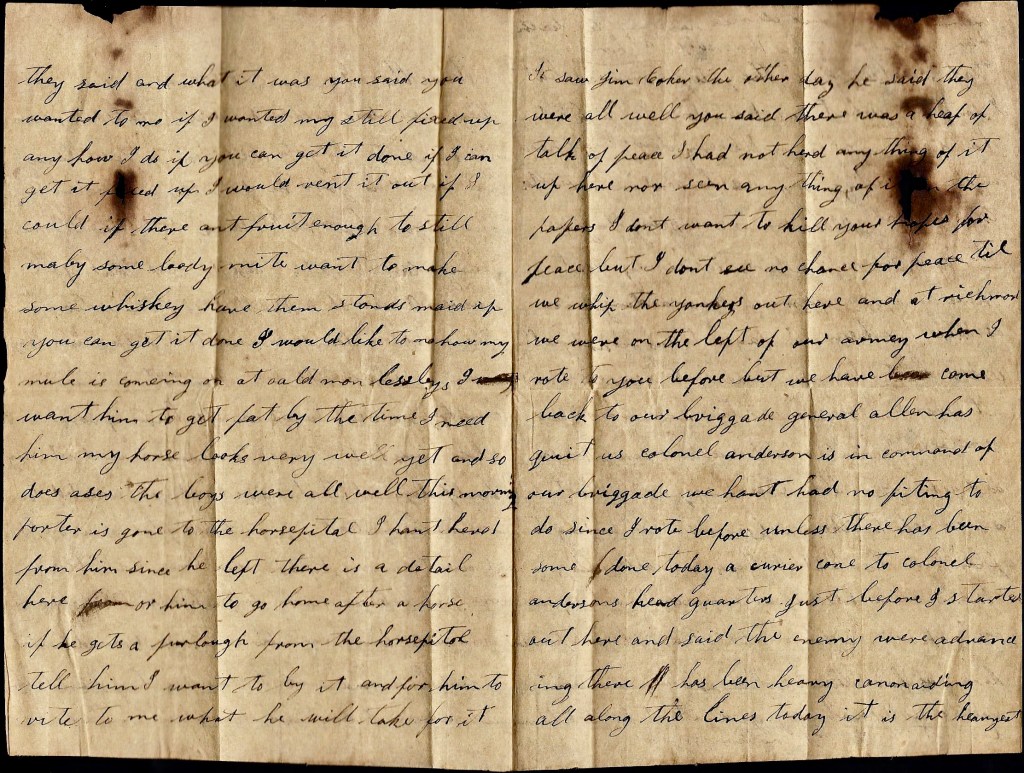 they said and what it was you said you
wanted to no if I wanted my still fixed up
any how I do if you can get it done if I can
get it fixed up I would rent it out if I
could if there ant fruit enough to still
maby some boody mite want to make
some whiskey have them stands maid up
you can get it done I would like to no how my
mule is comeing on at oald mon lesleys I
want him to get fat by the time I need
him my horse looks very well yet and so
does ases the boys were all well this morning
porter is gone to the horsepital I hant herd
from him since he left there is a detail
here for him to go home after a horse
if he gets a furlough from the horsepitol
tell him I want to by it and for him to
rite to me what he will take for it
I saw Jim Coker the other day he said they
were all well you said there was a heap of
talk of peace I had not herd any thing of it
up here nor seen any thing of it in the
papers I dont want to kill your hopes for
peace but I dont see no chance for peace til
we whip the yonkeys out here and at richmon
we were on the left of our armey when I
rote to you before but we have come
back to our briggade general allen has
quit us colonel anderson is in command of
our briggade we hant had no fiting to
do since I rote before unless there has been
some done today a curier cone to colonel
andersons head quarters Just before I started
out here and said the enemy were advanc
ing there has been heavy canonaiding
all along the lines today it is the heavyest